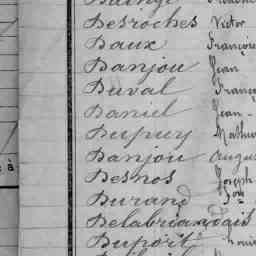 Desroches Victor
Daux François
Danjou Jean
Duval Franço
Daniel Jean-
Dupuy Mathur
Danjou Augus
Desnos Joseph
Durand
Delabriandais
Duport Louis